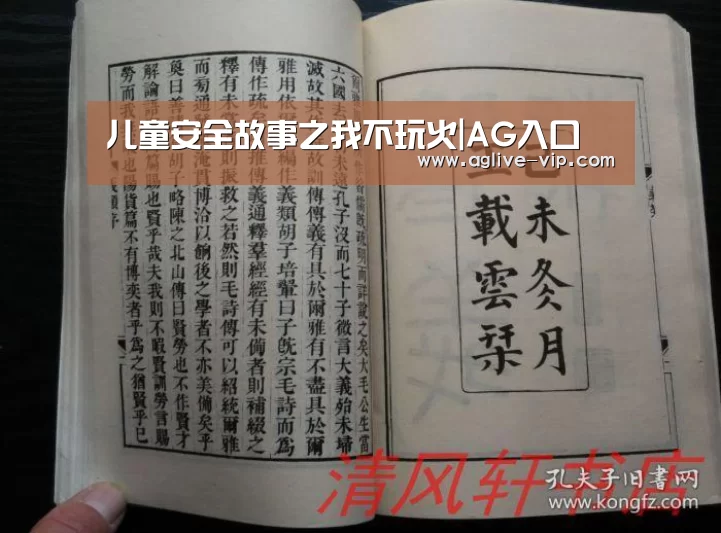 儿童安全故事之我不玩火|AG入口
www.aglive-vip.com
未冬月
載雲栞
疏明而詳說之矣大毛公生當
六國未遠孔子沒而七十子微言大義殆未埽
滅故其故訓傳傳義有具於爾雅有不盡具於爾
雅用依編作義類胡子培翬曰子旣宗毛詩而爲
傳作疏推傳義通釋羣經經有未備者則補綴之
釋有未則振救之若然則毛詩傳可以紹統爾雅
而芻通淹貫博洽以餉後之學者不亦美備矣乎
奐曰善胡子略陳之北山傳曰賢勞也不作賢才
解論語篇賜也賢乎哉夫我則不暇賢訓勞言賜
勞而我也陽貨篇不有博奕者乎爲之猶賢乎已
序
清风轩书店
孔夫子旧书网
www.kongfz.com